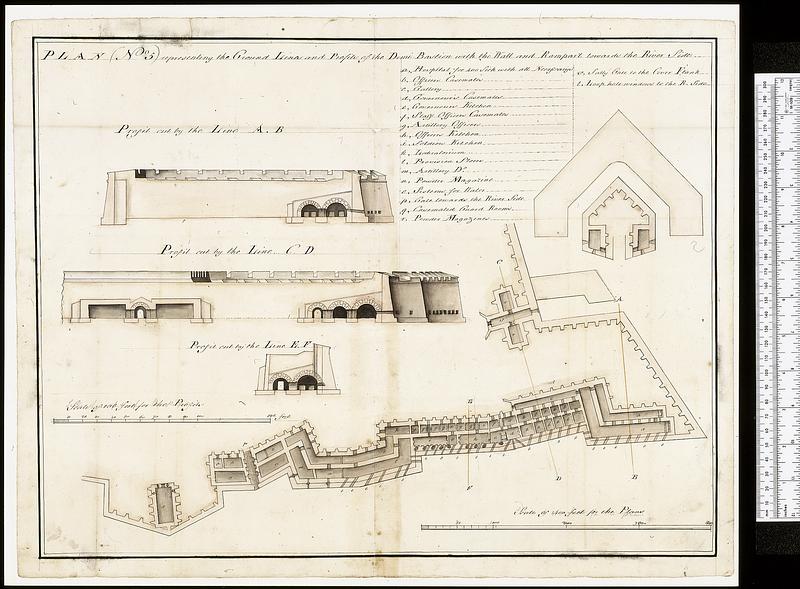 PLAN (No 5) representing the Ground Lines and Profils of the Demi Bastion with the Wall and Rampart towards the River Side
a, Hospital for 200 Sick with all
b, Officers Casemates
c, Gallery
d, Governour's Casemates
e, Governours Kitchen
f, Staff Officers Casemates
g, Artillery Officers
h, Officers Kitchen
i, Soldiers Kitchen
k,
l, Provision Store
m, Artillery Do
n, Powder Magazine
o, Cisterns for Water
p, Gate towards the River Side
q, Casemated Guard Rooms
r, Powder Magazines
s, Sally Gate to the Cover'd
t, Loop hole windows to the R. Side
Profil cut by the Line A. B
Profil cut by the Line C D
Profil cut by the Line E. F
Scale of feet for the Profils
feet
C
A
E
F
D
B
Scale of 400 feet for the Plans